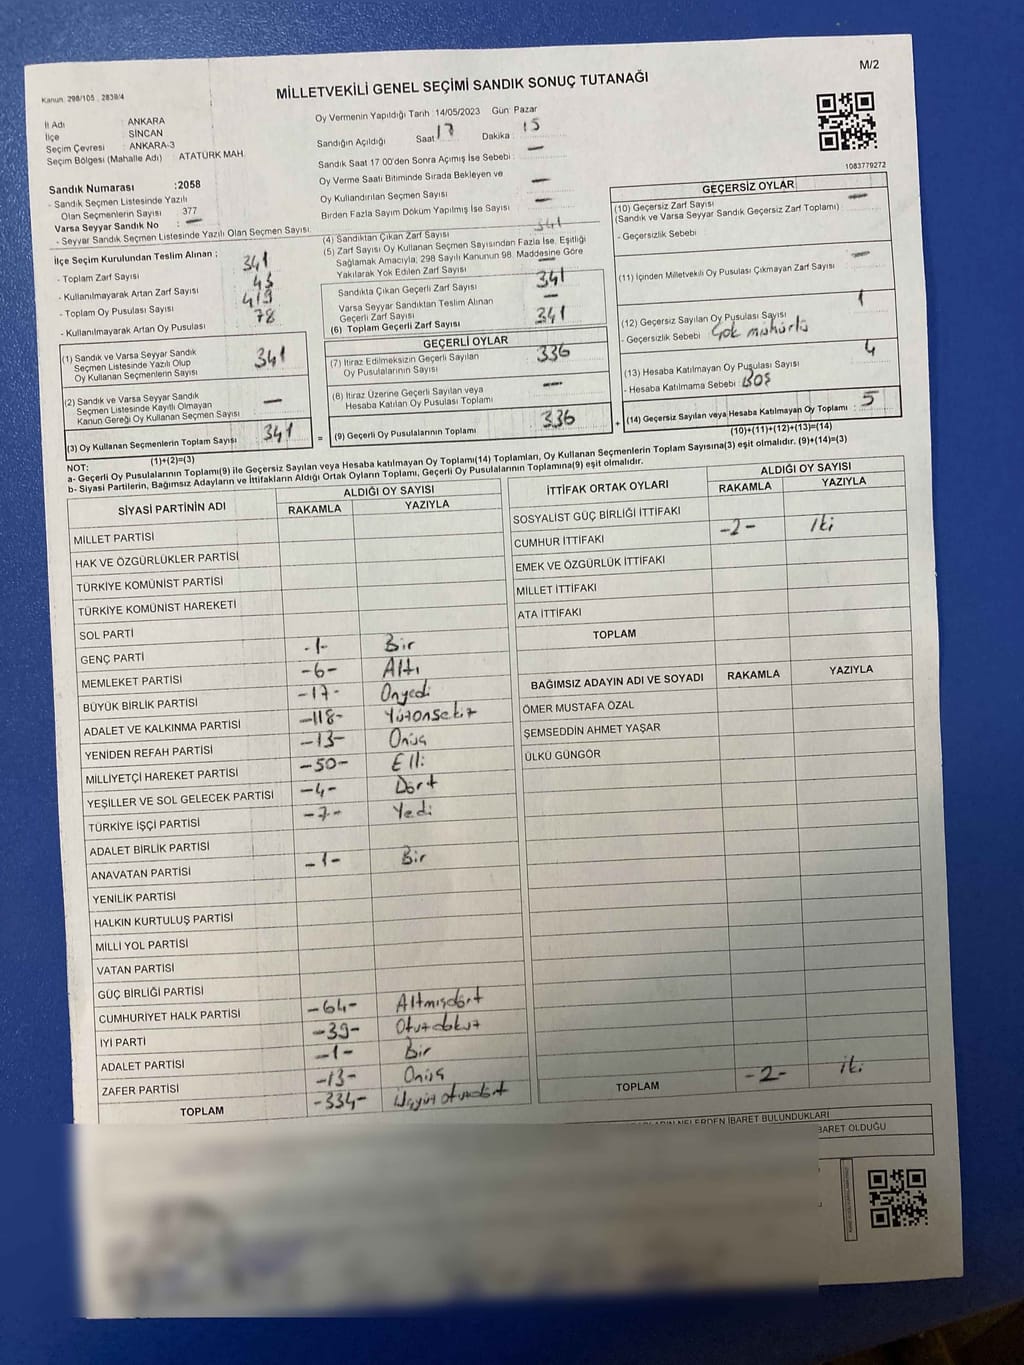 M/2
Kanun: 298/105 ; 2839/4
MİLLETVEKİLİ GENEL SEÇİMİ SANDIK SONUÇ TUTANAĞI
İl Adı : ANKARA
İlçe : SİNCAN
Seçim Çevresi : ANKARA-3
Seçim Bölgesi (Mahalle Adı) : ATATÜRK MAH.
Sandık Numarası :2058
- Sandık Seçmen Listesinde Yazılı
Olan Seçmenlerin Sayısı 377
Varsa Seyyar Sandık No : —
- Seyyar Sandık Seçmen Listesinde Yazılı Olan Seçmen Sayısı:
Oy Vermenin Yapıldığı Tarih 14/05/2023 Gün Pazar
Sandığın Açıldığı Saat 17 Dakika : 15
Sandık Saat 17 00'den Sonra Açımış İse Sebebi : —
Oy Verme Saati Bitiminde Sırada Bekleyen ve
Oy Kullandırılan Seçmen Sayısı —
Birden Fazla Sayım Döküm Yapılmış İse Sayısı —
1083779272
İlçe Seçim Kurulundan Teslim Alınan :
- Toplam Zarf Sayısı 341
- Kullanılmayarak Artan Zarf Sayısı
- Toplam Oy Pusulası Sayısı 419
- Kullanılmayarak Artan Oy Pusulası 78
(1) Sandık ve Varsa Seyyar Sandık
Seçmen Listesinde Yazılı Olup
Oy Kullanan Seçmenlerin Sayısı 341
(2) Sandık ve Varsa Seyyar Sandık
Seçmen Listesinde Kayıtlı Olmayan
Kanun Gereği Oy Kullanan Seçmen Sayısı —
(3) Oy Kullanan Seçmenlerin Toplam Sayısı 341
(1)+(2)=(3)
(4) Sandıktan Çıkan Zarf Sayısı 341
(5) Zarf Sayısı Oy Kullanan Seçmen Sayısından Fazla İse, Eşitliği
Sağlamak Amacıyla; 298 Sayılı Kanunun 98. Maddesine Göre
Yakılarak Yok Edilen Zarf Sayısı —
Sandıkta Çıkan Geçerli Zarf Sayısı 341
Varsa Seyyar Sandıktan Teslim Alınan
Geçerli Zarf Sayısı —
(6) Toplam Geçerli Zarf Sayısı 341
GEÇERLİ OYLAR
(7) İtiraz Edilmeksizin Geçerli Sayılan
Oy Pusulalarının Sayısı 336
(8) İtiraz Üzerine Geçerli Sayılan veya
Hesaba Katılan Oy Pusulası Toplamı —
= (9) Geçerli Oy Pusulalarının Toplamı 336
GEÇERSİZ OYLAR
(10) Geçersiz Zarf Sayısı —
(Sandık ve Varsa Seyyar Sandık Geçersiz Zarf Toplamı)
- Geçersizlik Sebebi
(11) İçinden Milletvekili Oy Pusulası Çıkmayan Zarf Sayısı —
(12) Geçersiz Sayılan Oy Pusulası Sayısı 1
- Geçersizlik Sebebi Çok mühürlü
(13) Hesaba Katılmayan Oy Pusulası Sayısı 4
- Hesaba Katılmama Sebebi : BOŞ
+ (14) Geçersiz Sayılan veya Hesaba Katılmayan Oy Toplamı : 5
(10)+(11)+(12)+(13)=(14)
NOT:
a- Geçerli Oy Pusulalarının Toplamı(9) ile Geçersiz Sayılan veya Hesaba katılmayan Oy Toplamı(14) Toplamları, Oy Kullanan Seçmenlerin Toplam Sayısına(3) eşit olmalıdır. (9)+(14)=(3)
b- Siyasi Partilerin, Bağımsız Adayların ve İttifakların Aldığı Ortak Oyların Toplamı, Geçerli Oy Pusulalarının Toplamına(9) eşit olmalıdır.
SİYASİ PARTİNİN ADI
ALDIĞI OY SAYISI
RAKAMLA YAZIYLA
MİLLET PARTİSİ
HAK VE ÖZGÜRLÜKLER PARTİSİ
TÜRKİYE KOMÜNİST PARTİSİ
TÜRKİYE KOMÜNİST HAREKETİ
SOL PARTİ
GENÇ PARTİ -1- Bir
MEMLEKET PARTİSİ -6- Altı
BÜYÜK BİRLİK PARTİSİ -17- Onyedi
ADALET VE KALKINMA PARTİSİ -118- Yüzonsekiz
YENİDEN REFAH PARTİSİ -13- Onüç
MİLLİYETÇİ HAREKET PARTİSİ -50- Elli
YEŞİLLER VE SOL GELECEK PARTİSİ -4- Dört
TÜRKİYE İŞÇİ PARTİSİ -7- Yedi
ADALET BİRLİK PARTİSİ
ANAVATAN PARTİSİ -1- Bir
YENİLİK PARTİSİ
HALKIN KURTULUŞ PARTİSİ
MİLLİ YOL PARTİSİ
VATAN PARTİSİ
GÜÇ BİRLİĞİ PARTİSİ
CUMHURİYET HALK PARTİSİ -64- Altmışdört
İYİ PARTİ -39- Otuzdokuz
ADALET PARTİSİ -1- Bir
ZAFER PARTİSİ -13- Onüç
TOPLAM -334- Üçyüz otuzdört
İTTİFAK ORTAK OYLARI
ALDIĞI OY SAYISI
RAKAMLA YAZIYLA
SOSYALİST GÜÇ BİRLİĞİ İTTİFAKI
CUMHUR İTTİFAKI -2- İki
EMEK VE ÖZGÜRLÜK İTTİFAKI
MİLLET İTTİFAKI
ATA İTTİFAKI
TOPLAM
BAĞIMSIZ ADAYIN ADI VE SOYADI RAKAMLA YAZIYLA
ÖMER MUSTAFA ÖZAL
ŞEMSEDDİN AHMET YAŞAR
ÜLKÜ GÜNGÖR
TOPLAM -2- iki
NELERDEN İBARET BULUNDUKLARI
BARET OLDUĞU